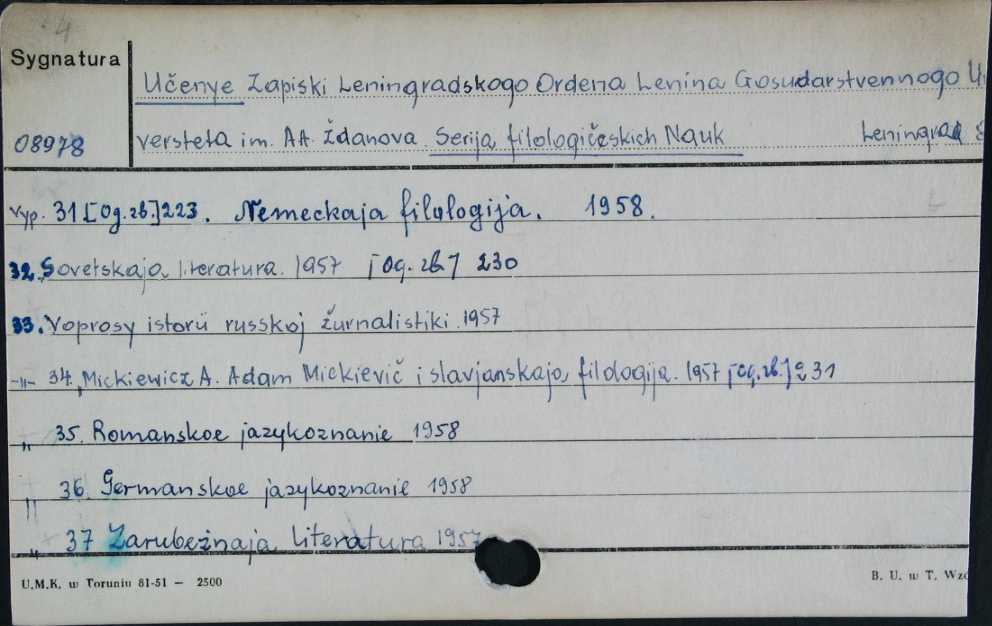 4
Sygnatura
Učenye Zapiski Leningradskogo Ordena Lenina Gosudarstvennogo
08978 versteta im. AA. Ždanova. Serija filologičeskich Nauk Leningrad
Vyp. 31 [Og. zb.] 223. Nemeckaja filologija. 1958.
32. Sovetskaja literatura. 1957 [Og. zb.] 230
33. Voprosy istorii russkoj žurnalistiki. 1957
-"- 34. Mickiewicz A. Adam Mickievič i slavjanskaja filologija. 1957 [Og. zb.] 231
" 35. Romanskoe jazykoznanie 1958
" 36. Germanskoe jazykoznanie 1958
" 37 Zarubežnaja literatura 1957
U.M.K. w Toruniu 81-51 — 2500 B. U. w T.